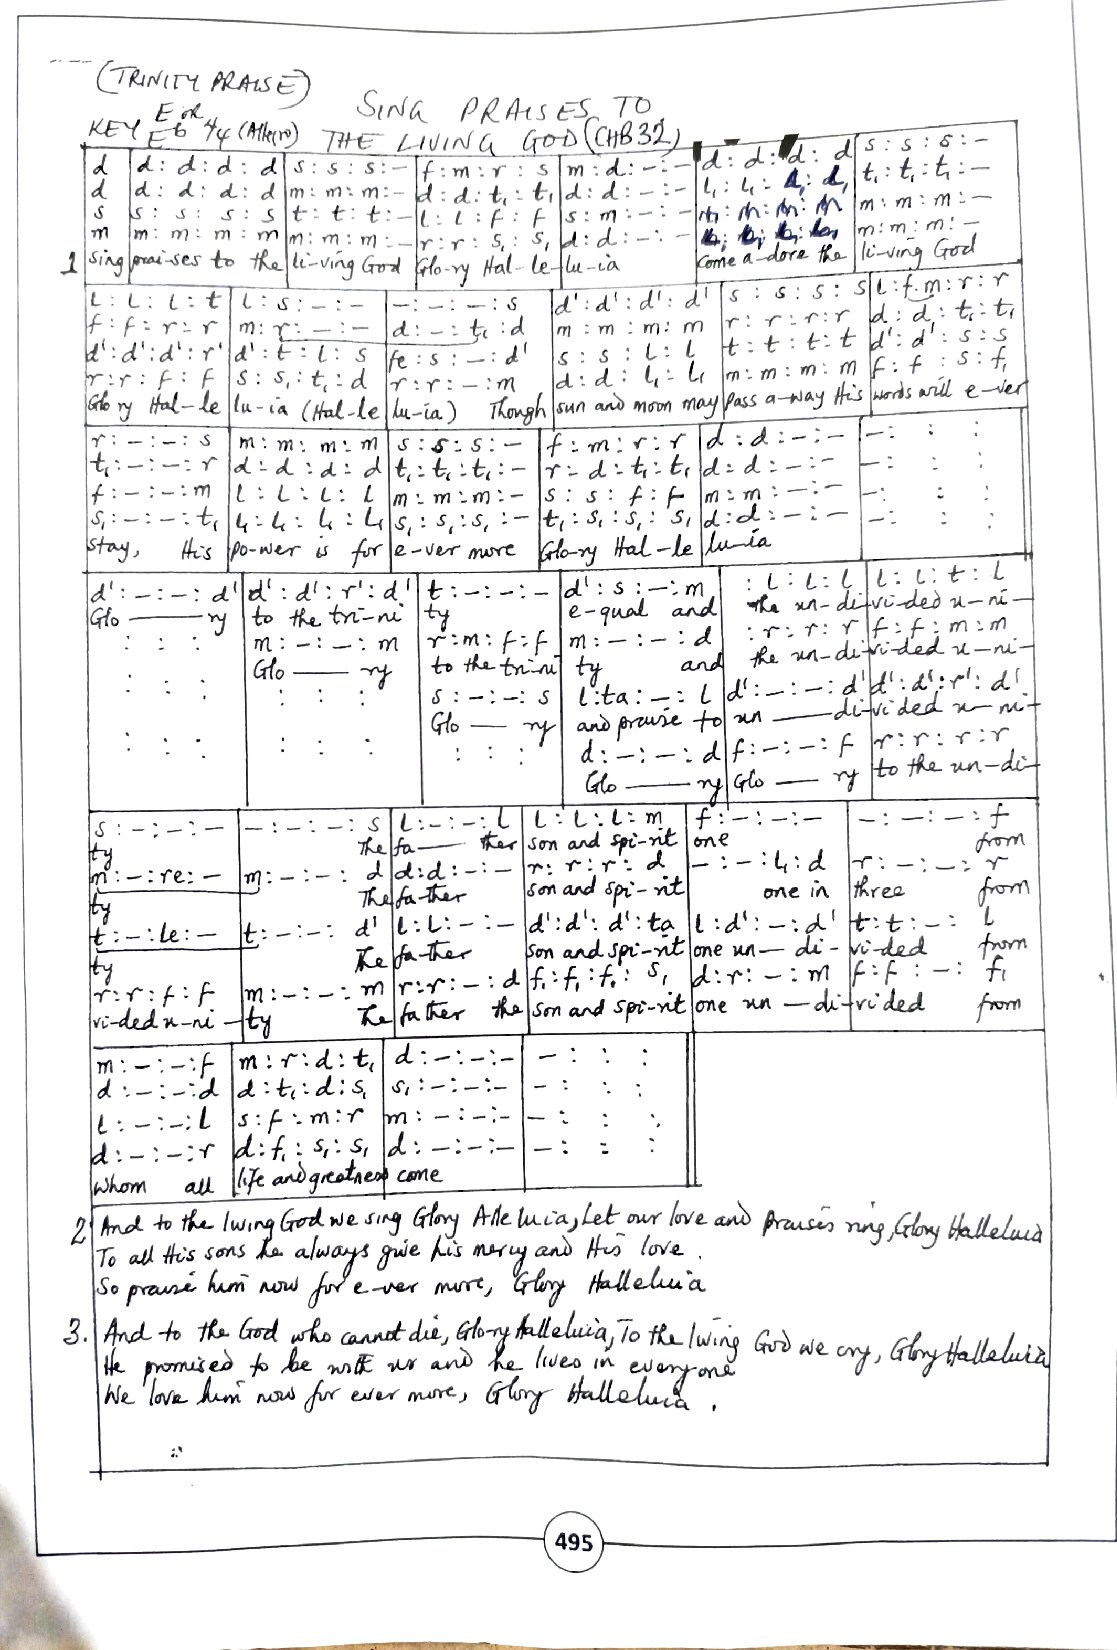 (TRINITY PRAISE)
SING PRAISES TO
E or
KEY Eb 4/4 (Allegro) THE LIVING GOD (CHB32)
d | d : d : d : d | s : s : s : – | f : m : r : s | m : d : – : – | d : d : d : d | s : s : s : –
d | d : d : d : d | m : m : m : – | d : d : t₁ : t₁ | d : d : – : – | l₁ : l₁ : | t₁ : t₁ : t₁ : –
s | s : s : s : s | t : t : t : – | l : l : f : f | s : m : – : – | m : m : m : –
m | m : m : m : m | m : m : m : – | r : r : s₁ : s₁ | d : d : – : – | m : m : m : –
1 Sing prai-ses to the li-ving God Glo-ry Hal-le-lu-ia Come a-dore the li-ving God
l : l : l : t | l : s : – : – | – : – : – : s | d' : d' : d' : d' | s : s : s : s | l : f . m : r : r
f : f : r : r | m : r : – : – | d : – : t₁ : d | m : m : m : m | r : r : r : r | d : d : t₁ : t₁
d' : d' : d' : r' | d' : t : l : s | fe : s : – : d' | s : s : l : l | t : t : t : t | d' : d' : s : s
r : r : f : f | s : s₁ : t₁ : d | r : r : – : m | d : d : l₁ : l₁ | m : m : m : m | f : f : s : f₁
Glo ry Hal-le lu-ia (Hal-le lu-ia) Though sun and moon may pass a-way His words will e-ver
r : – : – : s | m : m : m : m | s : s : s : – | f : m : r : r | d : d : – : – | – : : :
t₁ : – : – : r | d : d : d : d | t₁ : t₁ : t₁ : – | r : d : t₁ : t₁ | d : d : – : – | – : : :
f : – : – : m | l : l : l : l | m : m : m : – | s : s : f : f | m : m : – : – | – : : :
s₁ : – : – : t₁ | l₁ : l₁ : l₁ : l₁ | s₁ : s₁ : s₁ : – | t₁ : s₁ : s₁ : s₁ | d : d : – : – | – : : :
Stay, His po-wer is for e-ver more Glo-ry Hal-le lu-ia
d' : – : – : d' | d' : d' : r' : d' | t : – : – : – | d' : s : – : m | : l : l : l | l : l : t : l
Glo ——— ry to the tri-ni ty e-qual and the un-di-vi-ded u-ni-
: : : | m : – : – : m | r : m : f : f | m : – : – : d | : r : r : r | f : f : m : m
Glo ——— ry to the tri-ni ty and the un-di-vi-ded u-ni-
: : : | : : : | s : – : – : s | l : ta : – : l | d' : – : – : d' | d' : d' : r' : d'
Glo — ry and praise to un ——— di-vi ded u-ni-
: : : | : : : | : : : | d : – : – : d | f : – : – : f | r : r : r : r
Glo ——— ry Glo — ry to the un-di-
s : – : – : – | – : – : – : s | l : – : – : l | l : l : l : m | f : – : – : – | – : – : – : f
ty The fa — ther son and spi-rit one from
m : – : re : – | m : – : – : d | d : d : – : – | r : r : r : d | – : – : l₁ : d | r : – : – : r
ty The fa-ther son and spi-rit one in three from
t : – : le : – | t : – : – : d' | l : l : – : – | d' : d' : d' : ta | l : d' : – : d' | t : t : – : l
ty The fa-ther son and spi-rit one un — di-vi-ded from
r : r : f : f | m : – : – : m | r : r : – : d | f₁ : f₁ : f₁ : s₁ | d : r : – : m | f : f : – : f₁
vi-ded u-ni-ty The father the son and spi-rit one un — di-vided from
m : – : – : f | m : r : d : t₁ | d : – : – : – | – : : :
d : – : – : d | d : t₁ : d : s₁ | s₁ : – : – : – | – : : :
l : – : – : l | s : f : m : r | m : – : – : – | – : : :
d : – : – : r | d : f₁ : s₁ : s₁ | d : – : – : – | – : : :
Whom all life and greatness come
2 And to the living God we sing Glory Alleluia, Let our love and praises ring, Glory Halleluia
To all His sons he always give his mercy and His love.
So praise him now for e-ver more, Glory Halleluia
3. And to the God who cannot die, Glo-ry Halleluia, To the living God we cry, Glory Halleluia
He promised to be with us and he lives in everyone
We love him now for ever more, Glory Halleluia.
495